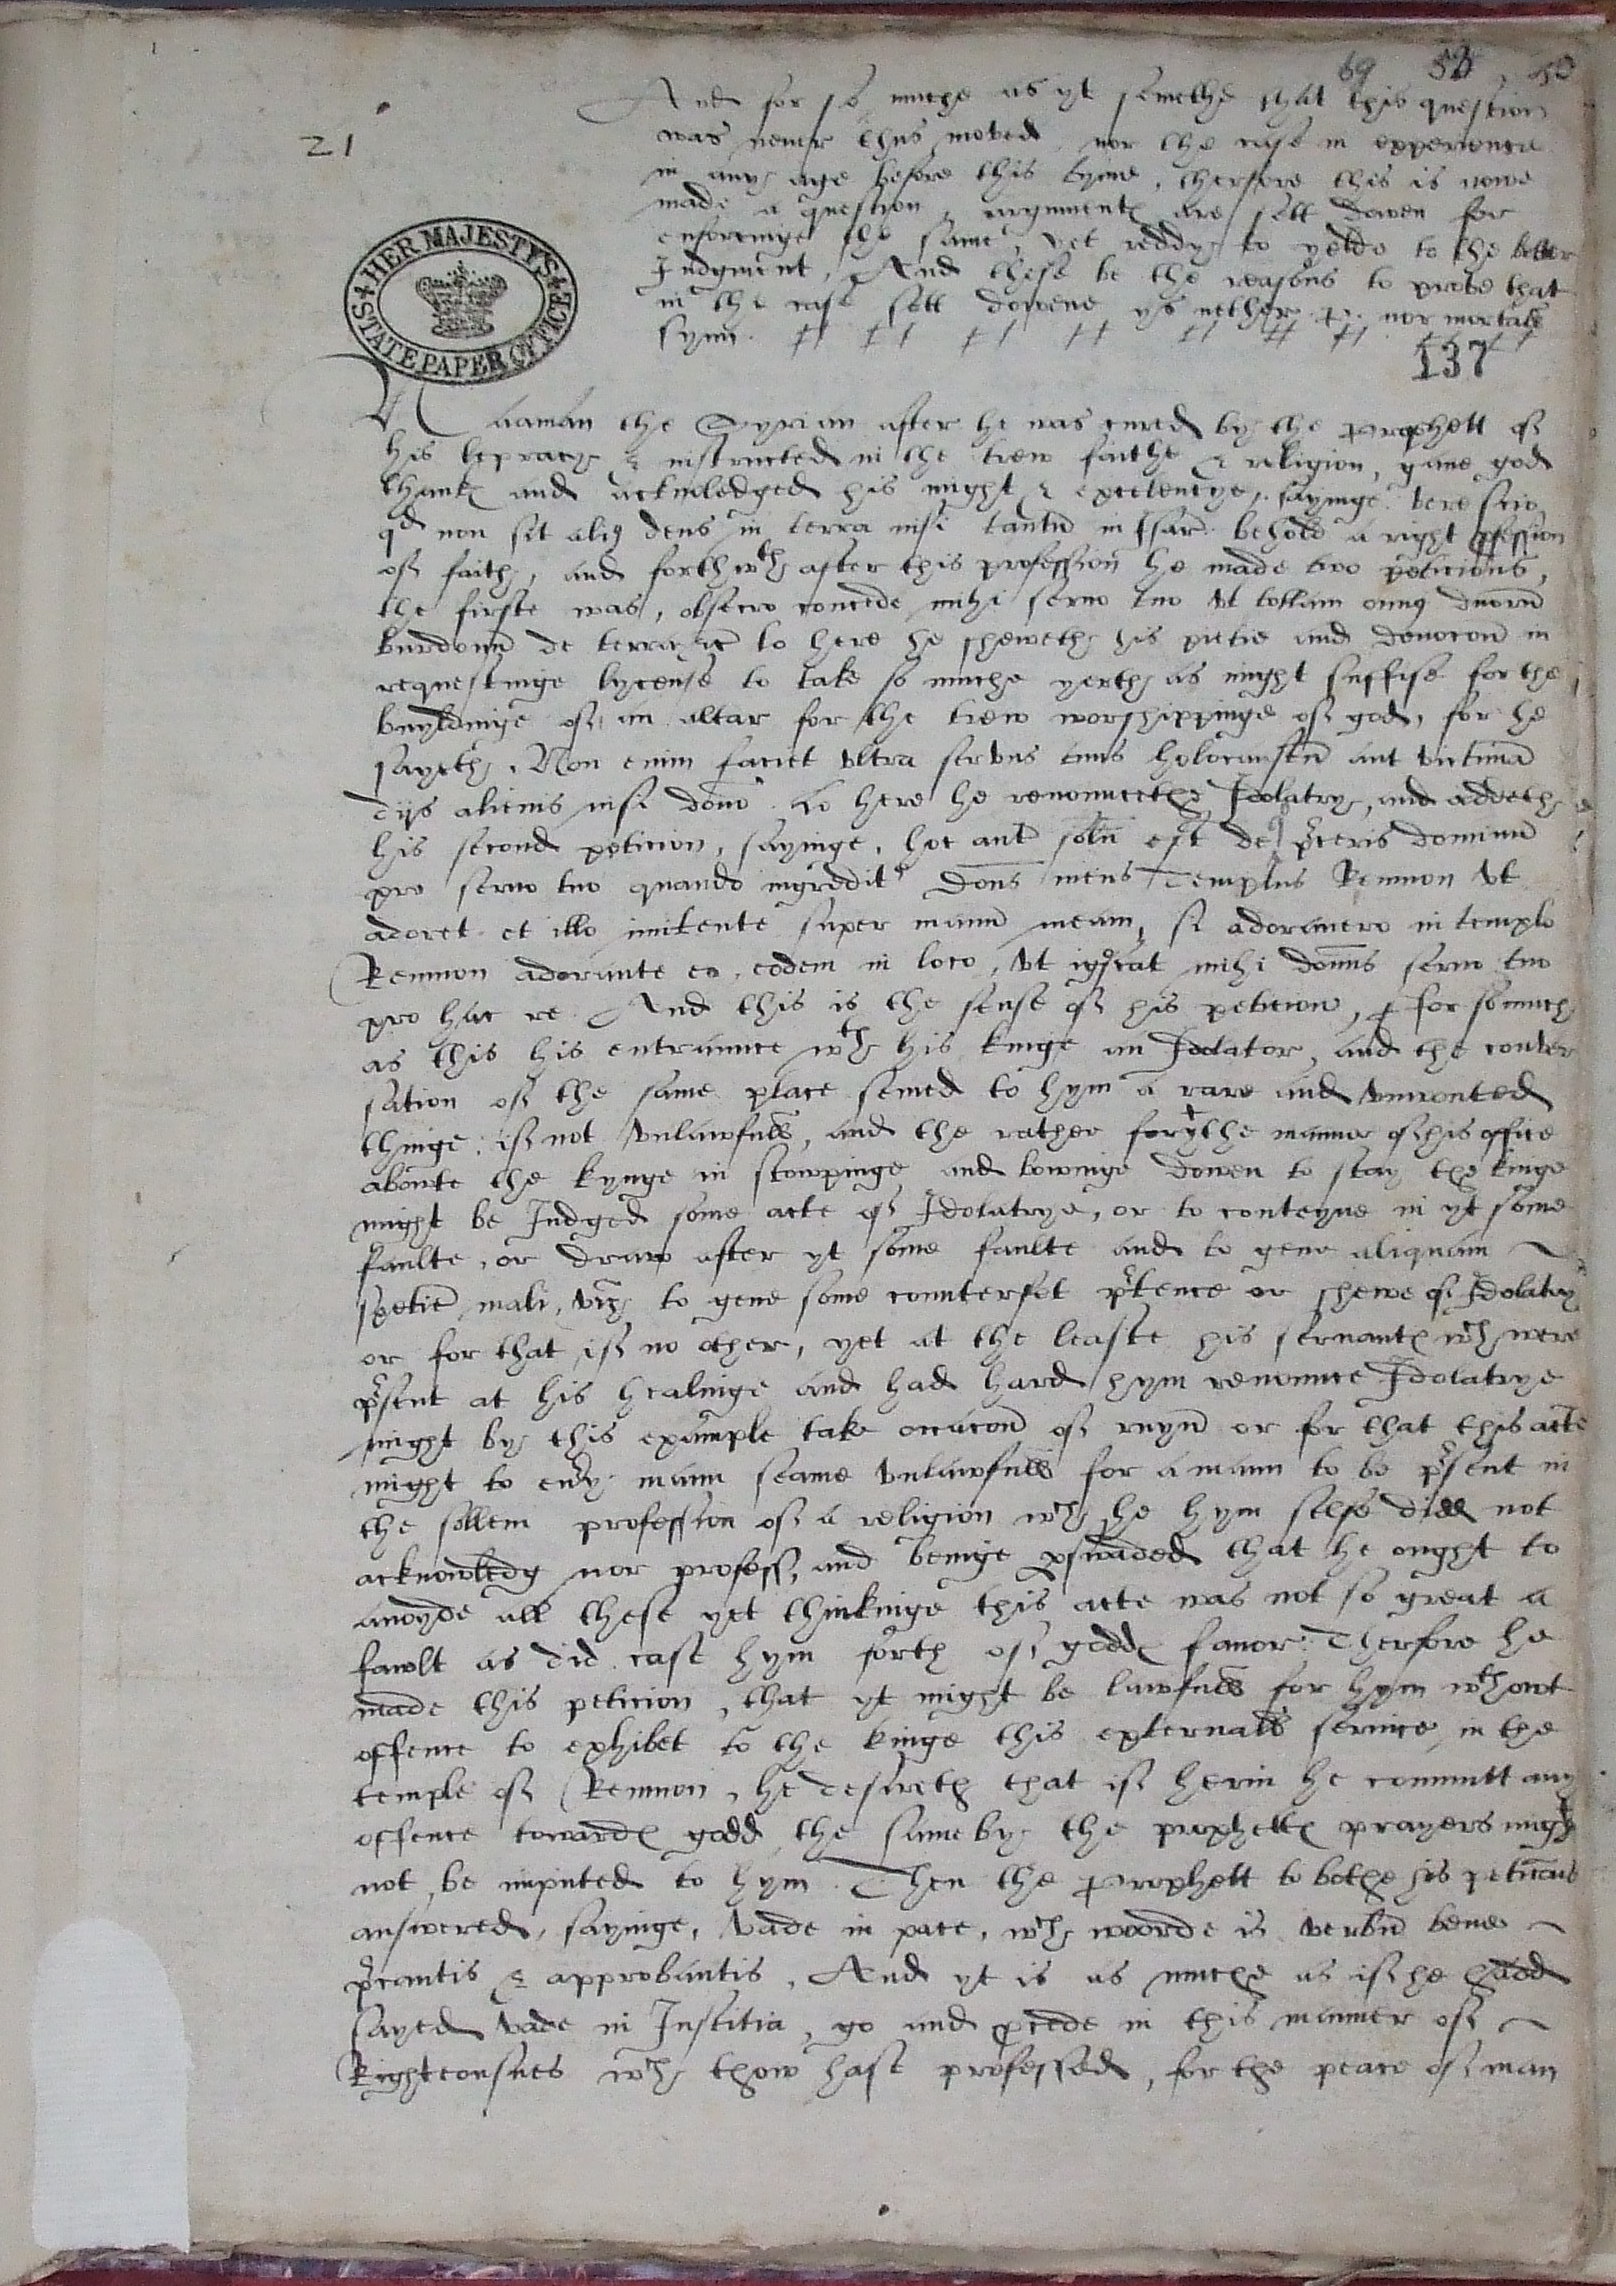 69 50
21
And for so muche as yt semethe that this question
was never thus moved, nor the case in experience
in any age before this tyme, therfore this is nowe
made a question, argumentes are sett downe for
enforcinge the same, yet reddy to yelde to the better
Judgment, And these be the reasons to prove that
in the case sett downe ys nether P. nor mortale
synn.
HER MAJESTYS STATE PAPER OFFICE
137
Naaman the Syrian after he was cured by the Prophett of
his lepracy & instructed in the trew faithe & religion, gave god
thankes and acknledged his might & excelencye, sayinge vere scio
qd non sit aliq deus in terra nisi tantu in Israel behold a right pfession
of faith, and forthwth after this profession he made two peticions,
the firste was, obsecro concede mihi servo tuo vt tollam onus duoru
burdonu de terra &c lo here he sheweth his pietie and devocon in
requestinge lycense to take so muche yerth as might suffise for the
buyldinge of an altar for the trew worshippinge of god, for he
sayeth, Non enim faciet vltra servus tuus holocaustu aut victima
dijs alienis nisi domino lo here he renounceth Idolatry, and addeth
his second peticion, sayinge, hoc aut solu est de q pceris dominu
pro servo tuo quando ingredit dons meus Templus Remmon vt
adoret et illo initente super manu meam, si adoravero in templo
Remmon adorante eo, eodem in loco, vt ignoscat mihi doms servo tuo
pro hac re And this is the sense of his peticion, for somuch
as this his entraunce wth his kinge an Idolator, and the conver
sation of the same place semed to hym a rare and vnwonted
thinge, if not vnlawfull, and the rather for yt the manner of his office
aboute the kynge in stowpinge and bowinge downe to stay the kinge
might be Judged some acte of Idolatrye, or to conteyne in yt some
faulte, or draw after yt some faulte and to geve aliquam
spetie mali, viz to geve some counterfet ptence or shewe of Idolatry
or for that if no other, yet at the leaste his servantes wch were
psent at his healinge and had hard hym renounce Idolatrye
might by this example take occacon of ruyn or for that this acte
might to every mann seame vnlawfull for a mann to be psent in
the sollem profession of a religion wch he hym selfe did not
acknowledg nor profess, and beinge pswaded that he ought to
avoyde all these yet thinkinge this acte was not so great a
fawlt as did cast hym forth of goddes favor: Therfore he
made this peticion, that yt might be lawfull for hym wthowt
offence to exhibet to the kinge this externall service in the
temple of Remmon, he desireth that if herin he committ any
offence towardes godd the same by the prophettes prayers might
not be imputed to hym. Then the Prophett to bothe his peticons
answered, sayinge, vade in pace, wch woorde is verbu bene
pcantis & approbantis, And yt is as muche as if he hadd
sayed vade in Justitia, go and pcede in this manner of
Righteousnes wch thow hast professed, for the peace of man